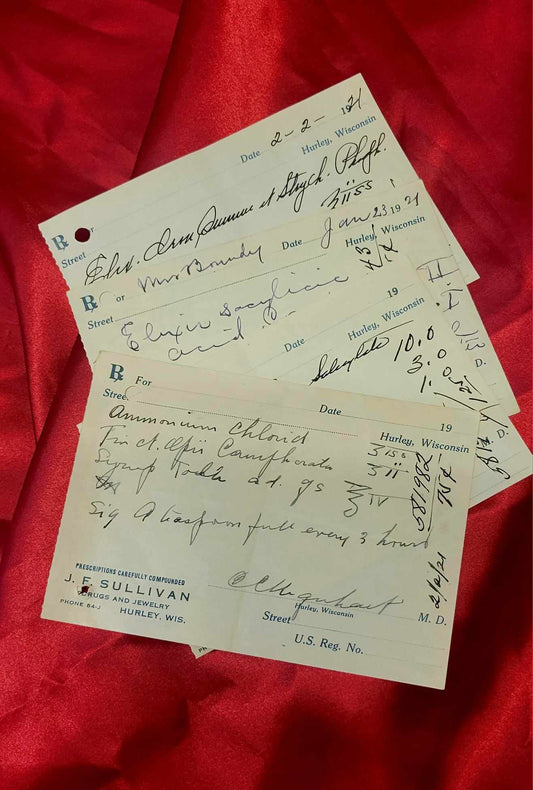 Date 2-2- 1921
Hurley, Wisconsin
℞ For
Street
Elix. Iron Quinine et Strych. Phosph.
℥iiss
℞ For Mrs Boundy Date Jan 23 1921
Street Hurley, Wisconsin
Elixir Sacylicic
acid
Date 19
Hurley, Wisconsin
Salicylate 10.0
3.0
1.
M. D.
M. D.
℞ For
Street Date 19
Hurley, Wisconsin
Ammonium Chlorid ʒiss
Tinct. Opii Camphorata ʒii
Syrup Tolu ad. qs ℥iv
Sig A teaspoon full every 3 hours
681982
75¢
2/2/21
PRESCRIPTIONS CAREFULLY COMPOUNDED
J. F. SULLIVAN
DRUGS AND JEWELRY
PHONE 54-J HURLEY, WIS.
M. D.
Hurley, Wisconsin
Street
U.S. Reg. No.